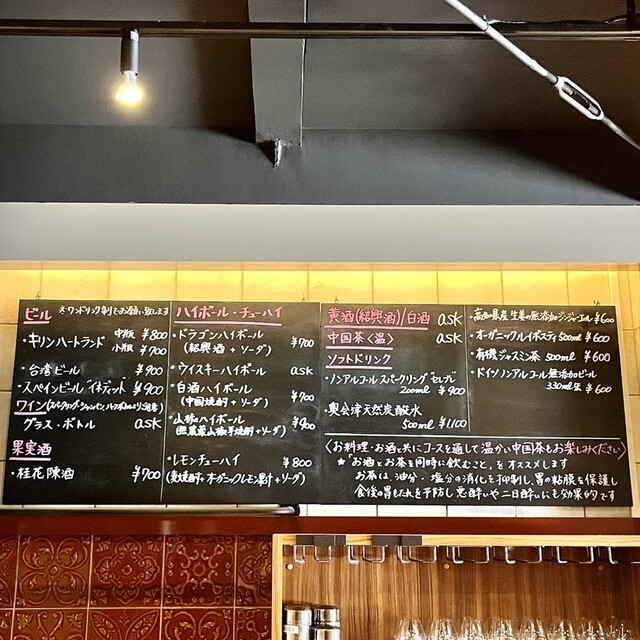 ビール ※ワンドリンク制でお願い致します
・キリンハートランド 中瓶 ¥800
小瓶 ¥700
・台湾ビール ¥900
・スペインビール"イネディット" ¥900
ワイン
グラス・ボトル ask
果実酒
・桂花陳酒 ¥700
ハイボール・チューハイ
・ドラゴンハイボール ¥700
(紹興酒+ソーダ)
・ウイスキーハイボール ask
・白酒ハイボール ¥700
(中国焼酎+ソーダ)
・山ねこハイボール ¥900
(無農薬山ねこ芋焼酎+ソーダ)
・レモンチューハイ ¥800
(麦焼酎+オーガニックレモン果汁+ソーダ)
黄酒(紹興酒)/白酒 ask
中国茶〈温〉 ask
ソフトドリンク
・ノンアルコールスパークリング"セレブレ"
200ml ¥900
・奥会津天然炭酸水
500ml ¥1100
・高知県産生姜の無添加ジンジャーエール ¥600
・オーガニックルイボスティ 500ml ¥600
・有機ジャスミン茶 500ml ¥600
・ドイツノンアルコール無添加ビール
330ml ¥600
〈お料理・お酒と共にコースを通して温かい中国茶もお楽しみください〉
★お酒とお茶を同時に飲むこと。をオススメします
お茶は、油分・塩分の消化を抑制し、胃の粘膜を保護し
食後の胃もたれを予防し悪酔いや二日酔いにも効果的です